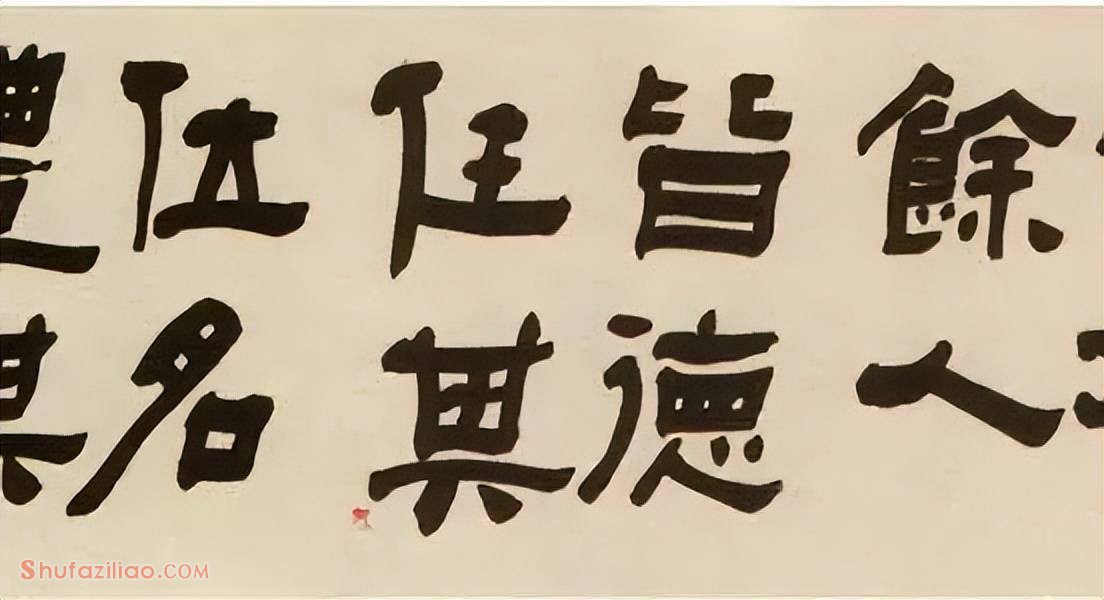 餘人
皆德
任其
位名
豐其
Shufaziliao.COM